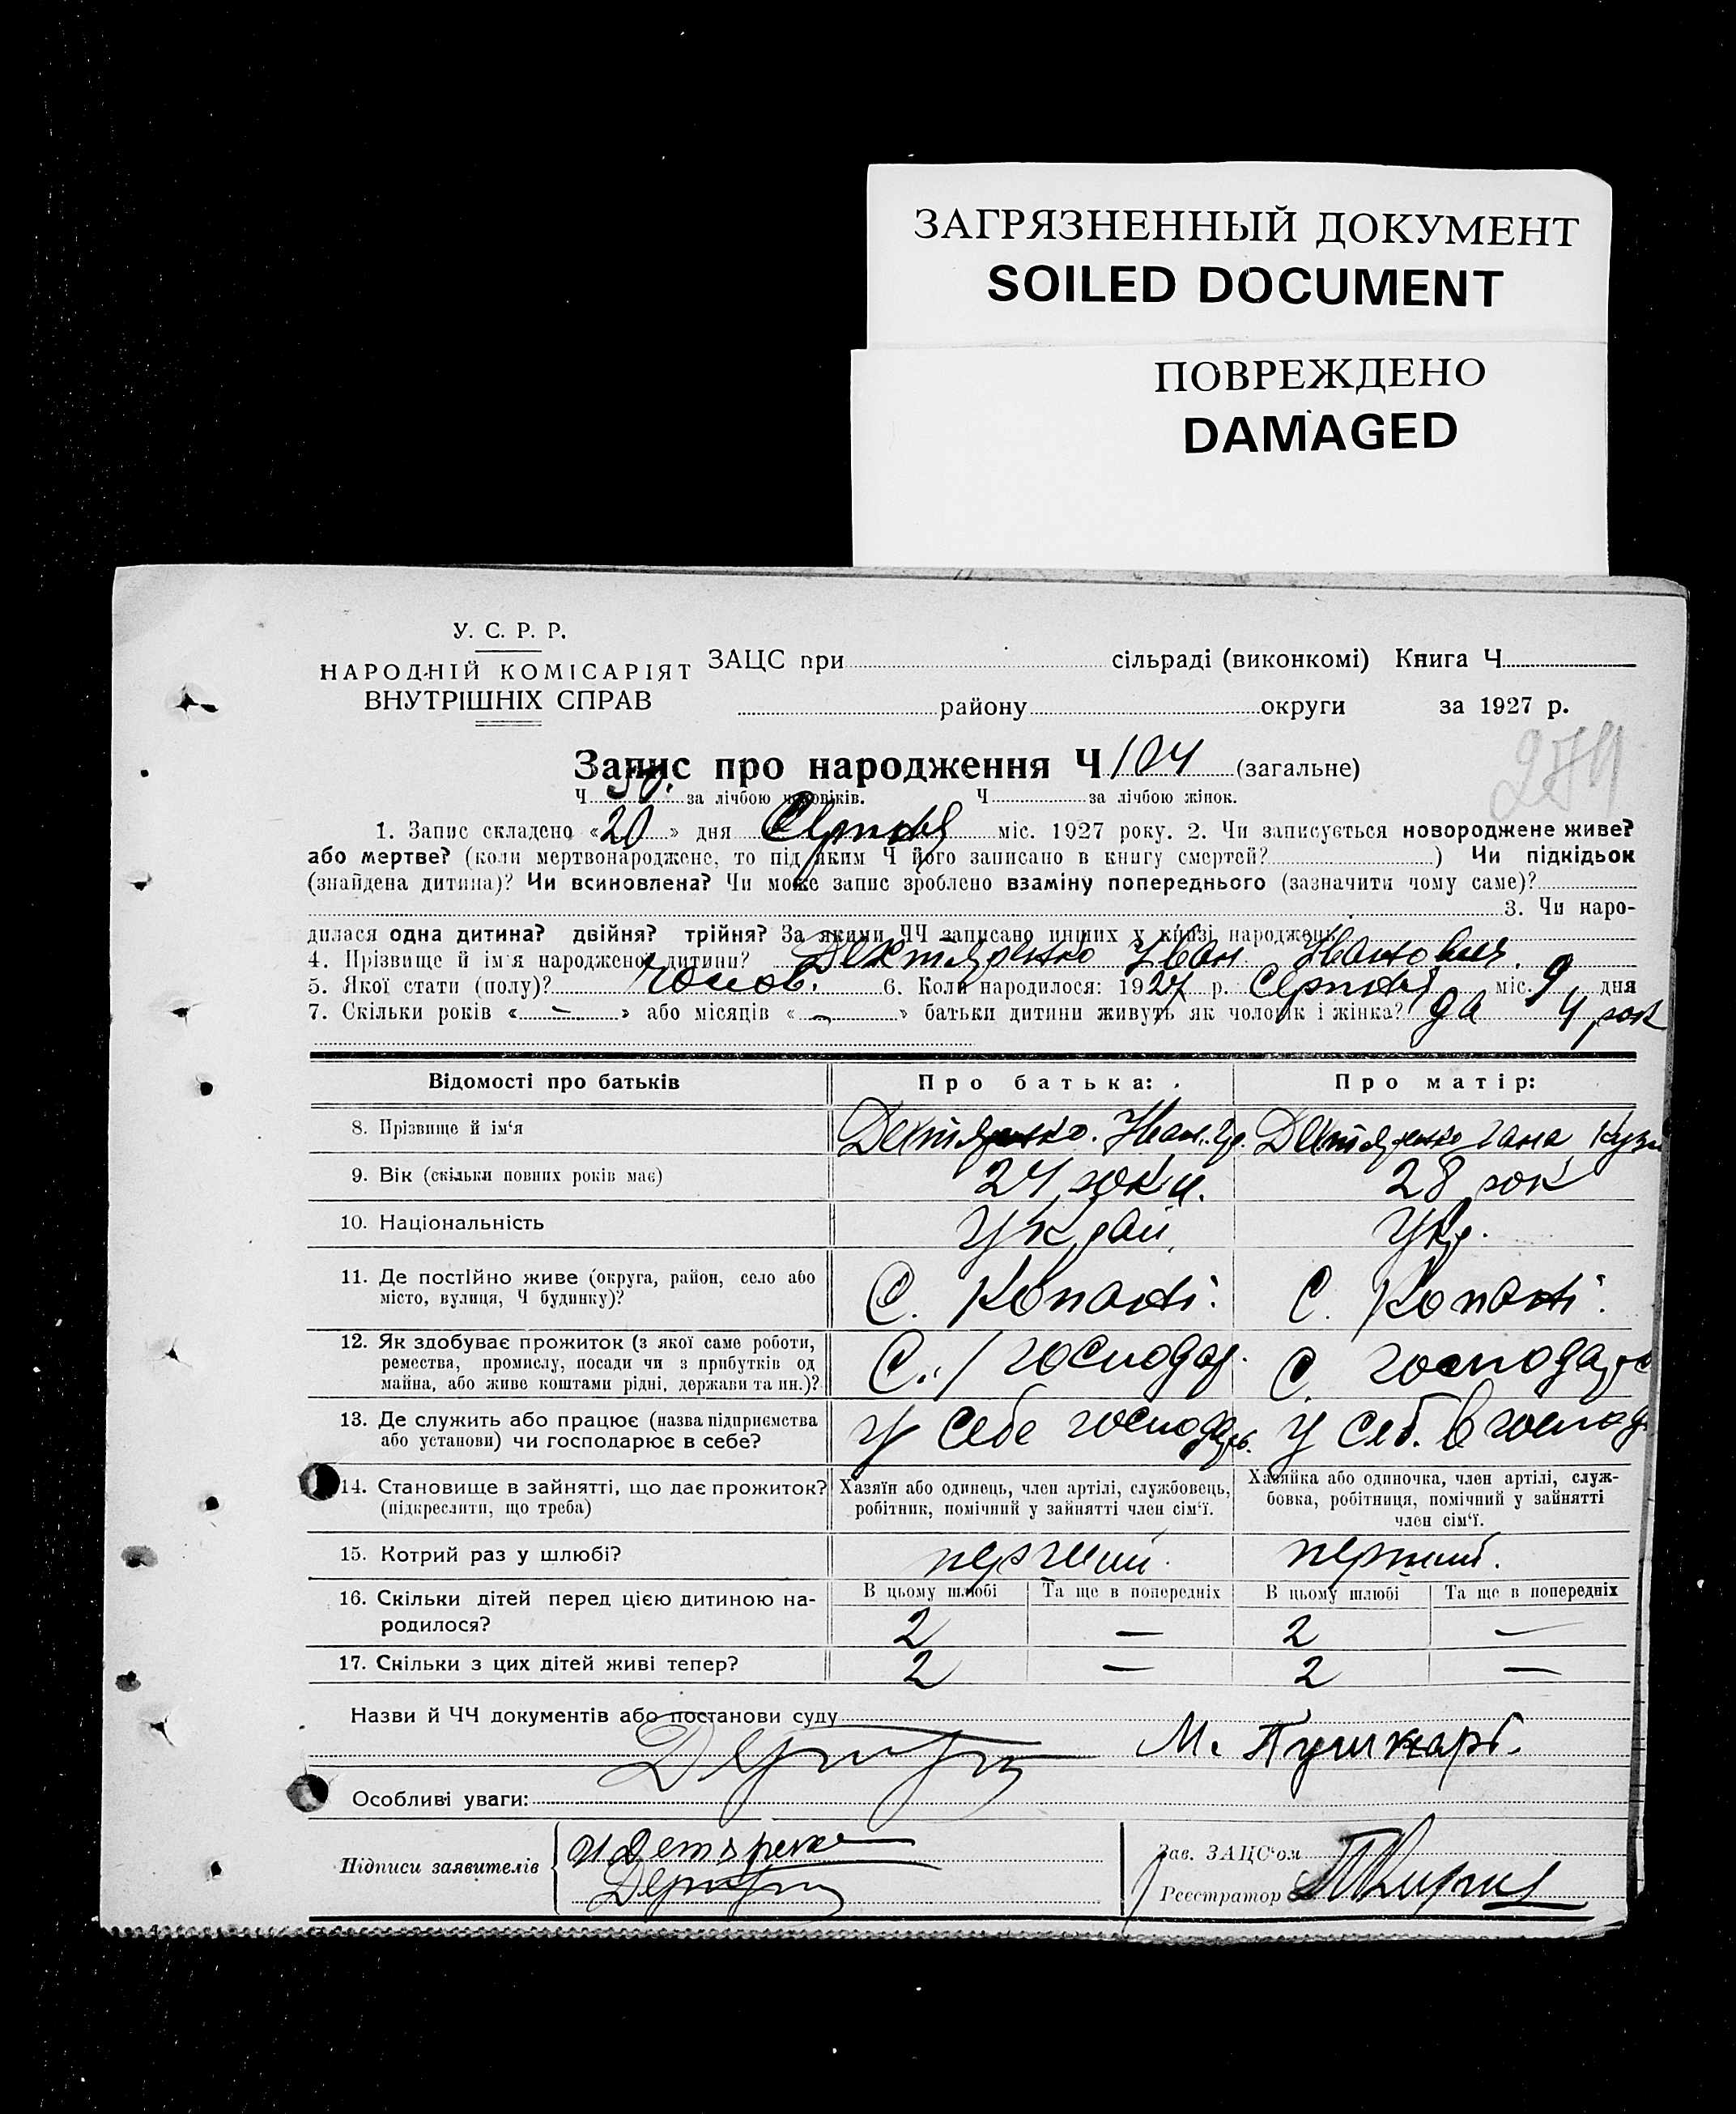 ЗАГРЯЗНЕННЫЙ ДОКУМЕНТ
SOILED DOCUMENT
ПОВРЕЖДЕНО
DAMAGED
У. С. Р. Р.
НАРОДНІЙ КОМІСАРІЯТ
ВНУТРІШНІХ СПРАВ
ЗАЦС при сільраді (виконкомі) Книга Ч
району округи за 1927 р.
274
Запис про народження Ч 104 (загальне)
Ч 50. за лічбою чоловіків. Ч за лічбою жінок.
1. Запис складено «20» дня Серпня міс. 1927 року. 2. Чи записується новороджене живе?
або мертве? (коли мертвонароджене, то під яким Ч його записано в книгу смертей?) Чи підкідьок
(знайдена дитина)? Чи всиновлена? Чи може запис зроблено взаміну попереднього (зазначити чому саме)?
3. Чи наро-
дилася одна дитина? двійня? трійня? За якими ЧЧ записано инших у книзі народжень
4. Прізвище й ім'я народженої дитини? Дехтяренко Іван Іванович.
5. Якої стати (полу)? чолов. 6. Коли народилося: 1927 р. Серпня міс. 9 дня
7. Скільки років «—» або місяців «—» батьки дитини живуть як чоловік і жінка? да 4 рок
Відомості про батьків Про батька: Про матір:
8. Прізвище й ім'я Дехтяренко. Іван. Дехтяренко Гана Кузм
9. Вік (скільки повних років має) 24 роки. 28 рок
10. Національність Україн. Укр.
11. Де постійно живе (округа, район, село або
місто, вулиця, Ч будинку)? С. Копачі. С. Копачі.
12. Як здобуває прожиток (з якої саме роботи,
ремества, промислу, посади чи з прибутків од
майна, або живе коштами рідні, держави та ин.)? С./господар. С. господарс
13. Де служить або працює (назва підприємства
або установи) чи господарює в себе? у себе господарь. у себ. в господ
14. Становище в зайнятті, що дає прожиток?
(підкреслити, що треба)
Хазяїн або одинець, член артілі, службовець,
робітник, помічний у зайнятті член сім'ї.
Хазяйка або одиночка, член артілі, служ-
бовка, робітниця, помічний у зайнятті
член сім'ї.
15. Котрий раз у шлюбі? перший. перший.
16. Скільки дітей перед цією дитиною на-
родилося?
В цьому шлюбі Та ще в попередніх В цьому шлюбі Та ще в попередніх
2 — 2 —
17. Скільки з цих дітей живі тепер? 2 — 2 —
Назви й ЧЧ документів або постанови суду
М. Пушкарь.
Особливі уваги:
Підписи заявителів
Зав. ЗАЦС'ом
Реєстратор